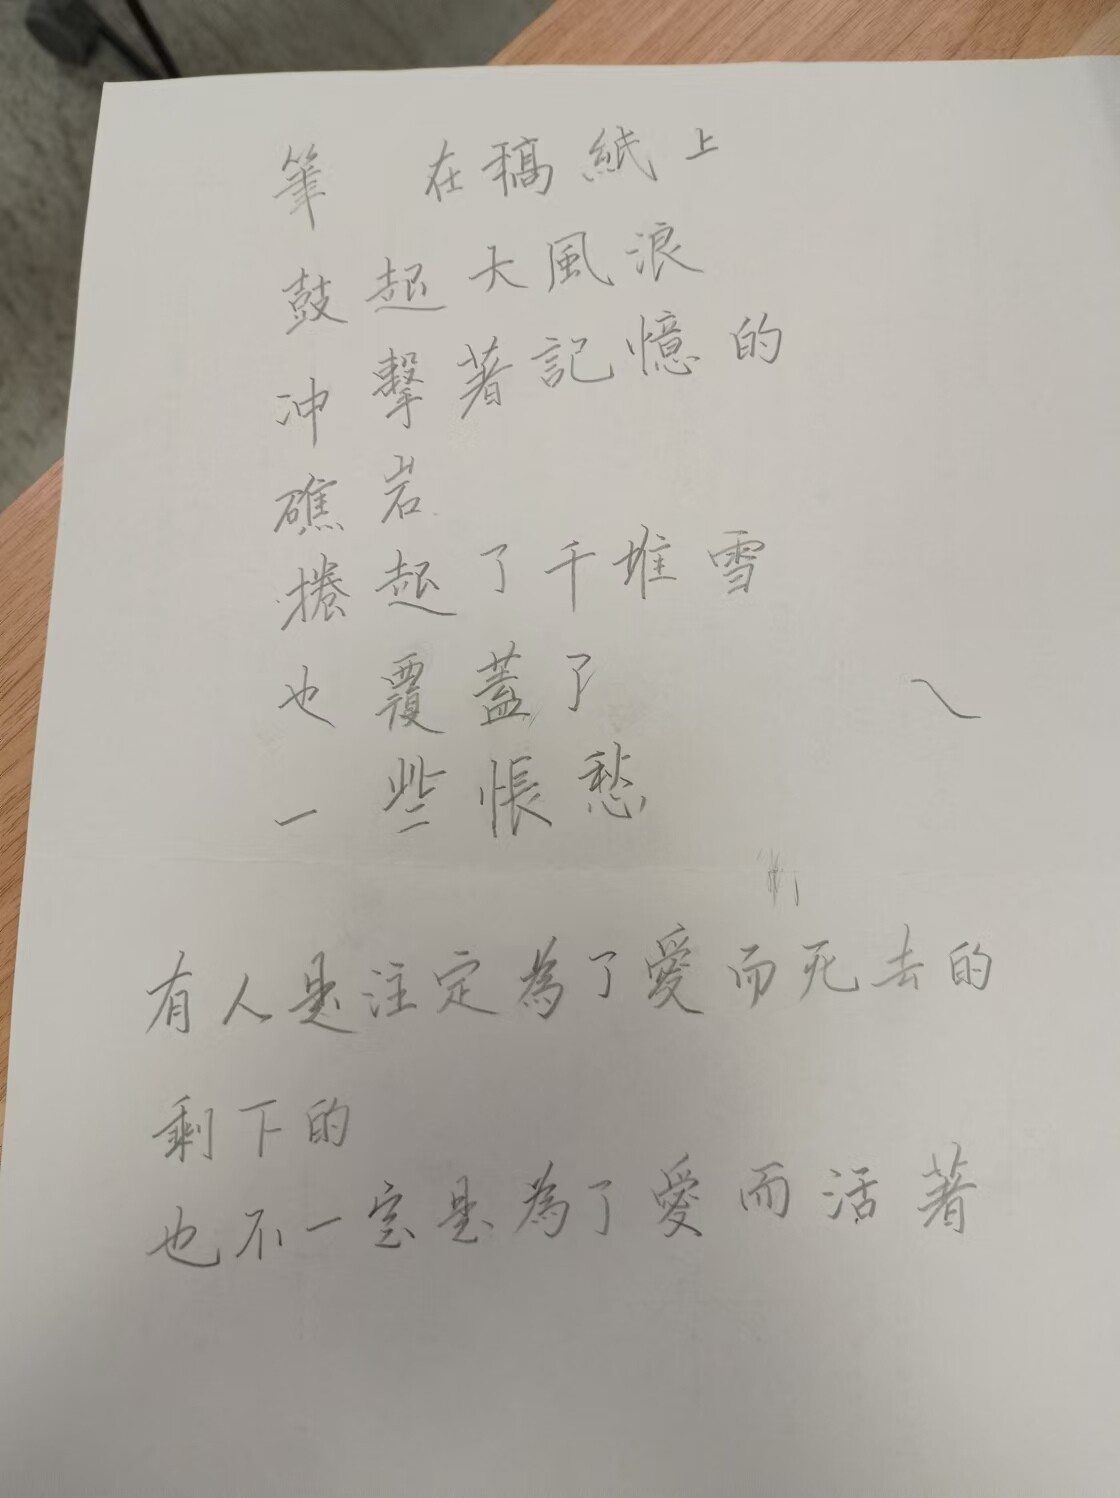 筆 在稿紙上
鼓起大風浪
冲擊著記憶的
礁岩
捲起了千堆雪
也覆蓋了
一些悵愁
有人是注定為了愛而死去的
剩下的
也不一定是為了愛而活著